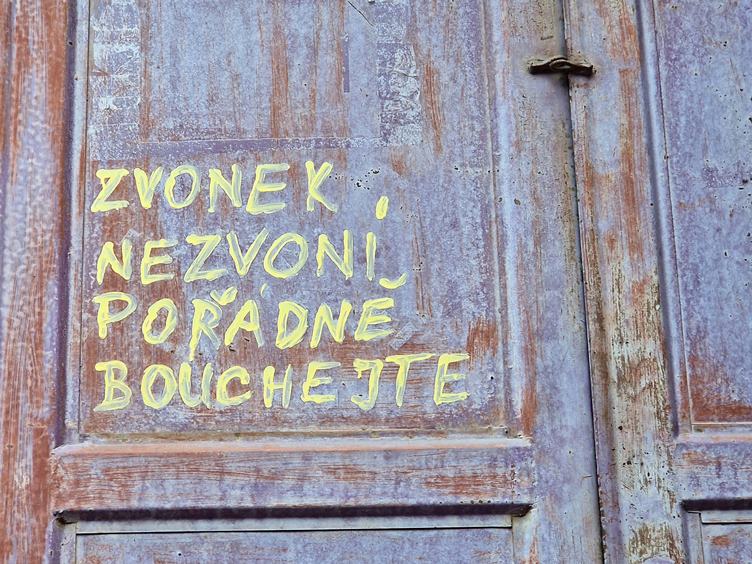 ZVONEK
NEZVONÍ
POŘÁDNĚ
BOUCHEJTE